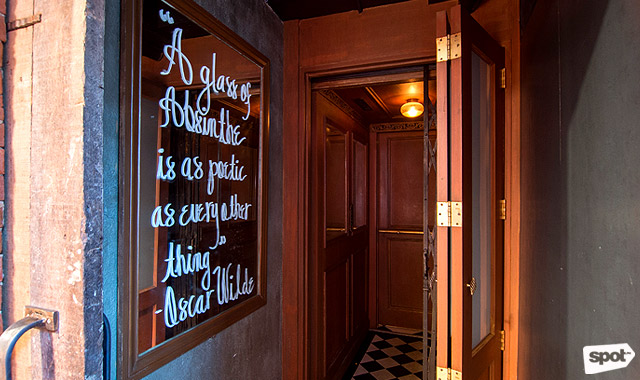 “A glass of
Absinthe
is as poetic
as every other
thing”
-Oscar Wilde
spot™